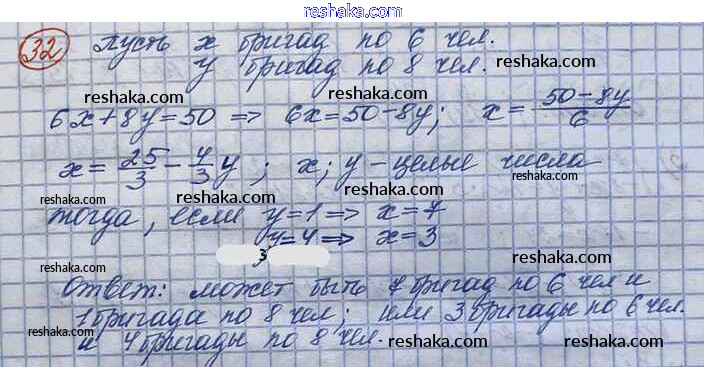 reshaka.com
32 Пусть x бригад по 6 чел.
reshaka.com reshaka.com
y бригад по 8 чел.
reshaka.com reshaka.com
6x+8y=50 => 6x=50-8y; x=(50-8y)/6
reshaka.com
x=25/3-4/3y; x; y - целые числа
reshaka.com reshaka.com
тогда, если y=1 => x=7
reshaka.com reshaka.com
y=4 => x=3
reshaka.com 3 reshaka.com
Ответ: может быть 7 бригад по 6 чел и
reshaka.com reshaka.com
1 бригада по 8 чел; или 3 бригады по 6 чел.
reshaka.com
и 4 бригады по 8 чел.
reshaka.com reshaka.com